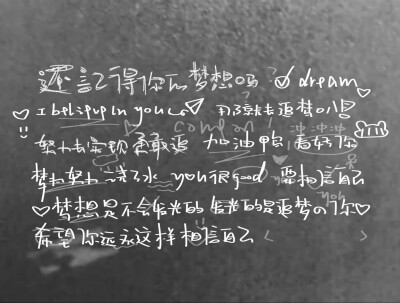 還記得你的梦想吗? dream
I believe in you 用了就去追梦叭
努力去实现 勇敢追 come on 加油鸭 冲冲冲 看好你
梦想 努力 you很good 要相信自己
梦想是不会发光的 发光的是追梦の你
希望你永远这样相信自己